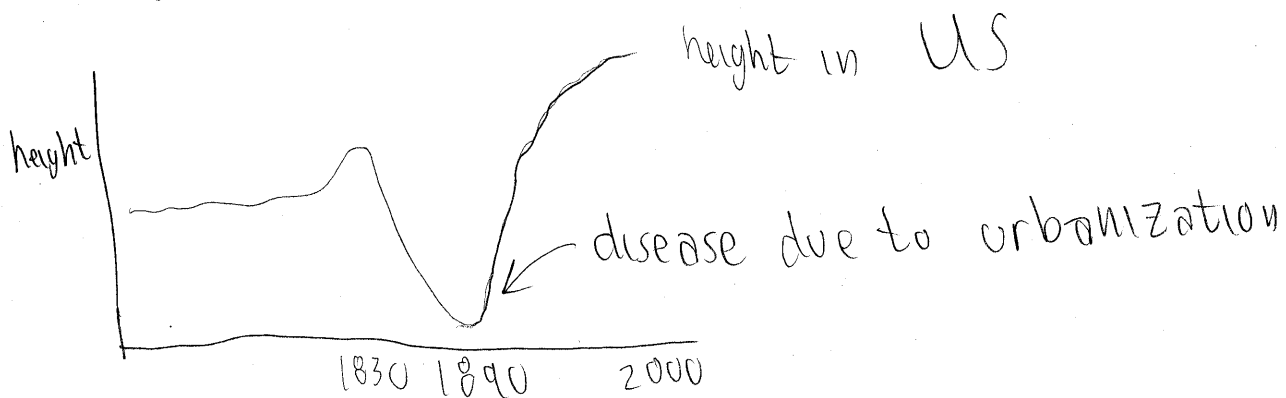 height in US
height
disease due to urbanization
1830 1890 2000